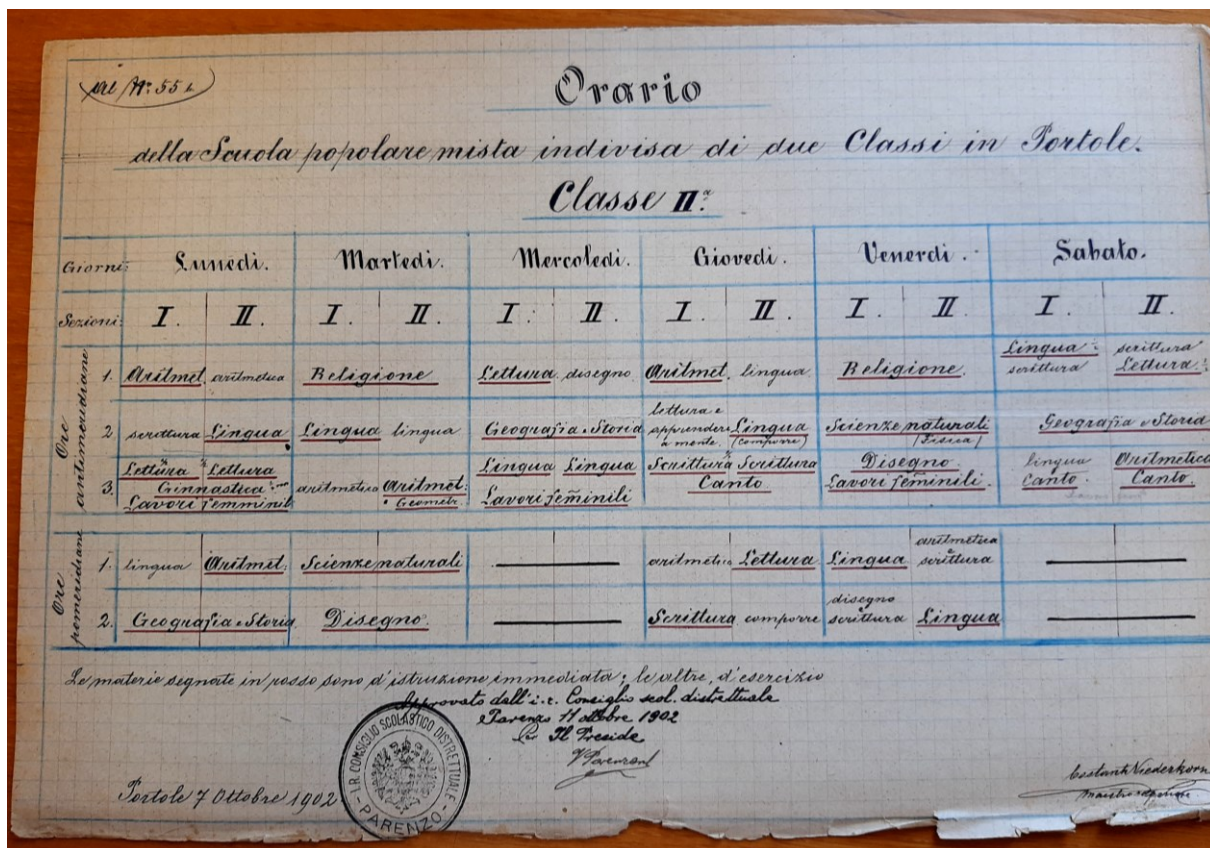 ad N.º 55
Orario
della Scuola popolare mista indivisa di due Classi in Portole.
Classe IIª
Giorni: Lunedi. Martedi. Mercoledi. Giovedi. Venerdi. Sabato.
Sezioni: I. II. I. II. I. II. I. II. I. II. I. II.
Ore antimeridiane
1. Aritmet. aritmetica Religione Lettura disegno Aritmet. lingua Religione. Lingua scrittura scrittura Lettura
2 scrittura Lingua Lingua lingua Geografia e Storia lettura e apprendere a mente. Lingua (comporre) Scienze naturali (Fisica) Geografia e Storia
3. Lettura Lettura Ginnastica Lavori femminili aritmetica Aritmet. Geometr. Lingua Lingua Lavori feminili Scrittura Scrittura Canto Disegno Lavori feminili. lingua Canto. Aritmetica Canto.
Ore pomeridiane
1. lingua Aritmet. Scienze naturali aritmetica Lettura Lingua aritmetica scrittura
2. Geografia e Storia Disegno. Scrittura comporre disegno scrittura Lingua
Le materie segnate in rosso sono d'istruzione immediata; le altre, d'esercizio
Approvato dall' i. r. Consiglio scol. distrettuale
Parenzo 11 ottobre 1902
Per Il Preside
I.R. CONSIGLIO SCOLASTICO DISTRETTUALE - PARENZO
Portole 7 Ottobre 1902
Niederkorn